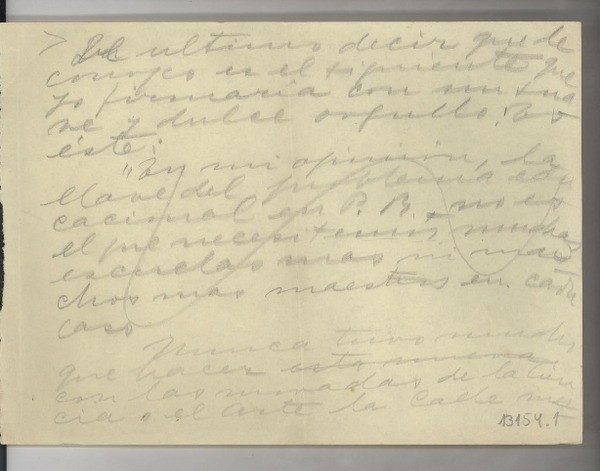 > El ultimo decir que le
conozco es el siguiente que
yo firmaria con un sua
ve y dulce orgullo. Es
éste:
"En mi opinión, la
llave del problema edu
cacional en P. R. no es
el que necesitemos muchas
escuelas mas ni mu
chos mas maestros en cada
caso
Nunca tuvo mucho
que hacer esta nueva
con las moradas de la cien
cia o el arte la calle
13154.1